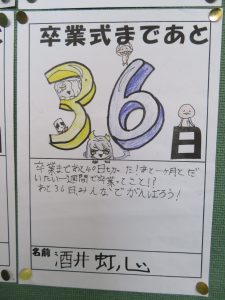 卒業式まであと
36
日
卒業まであと40日もなった！あと一ヶ月と、だ
いたい一週間で卒業ってこと!!
あと36日みんなでがんばろう！
名前 酒井 虹心